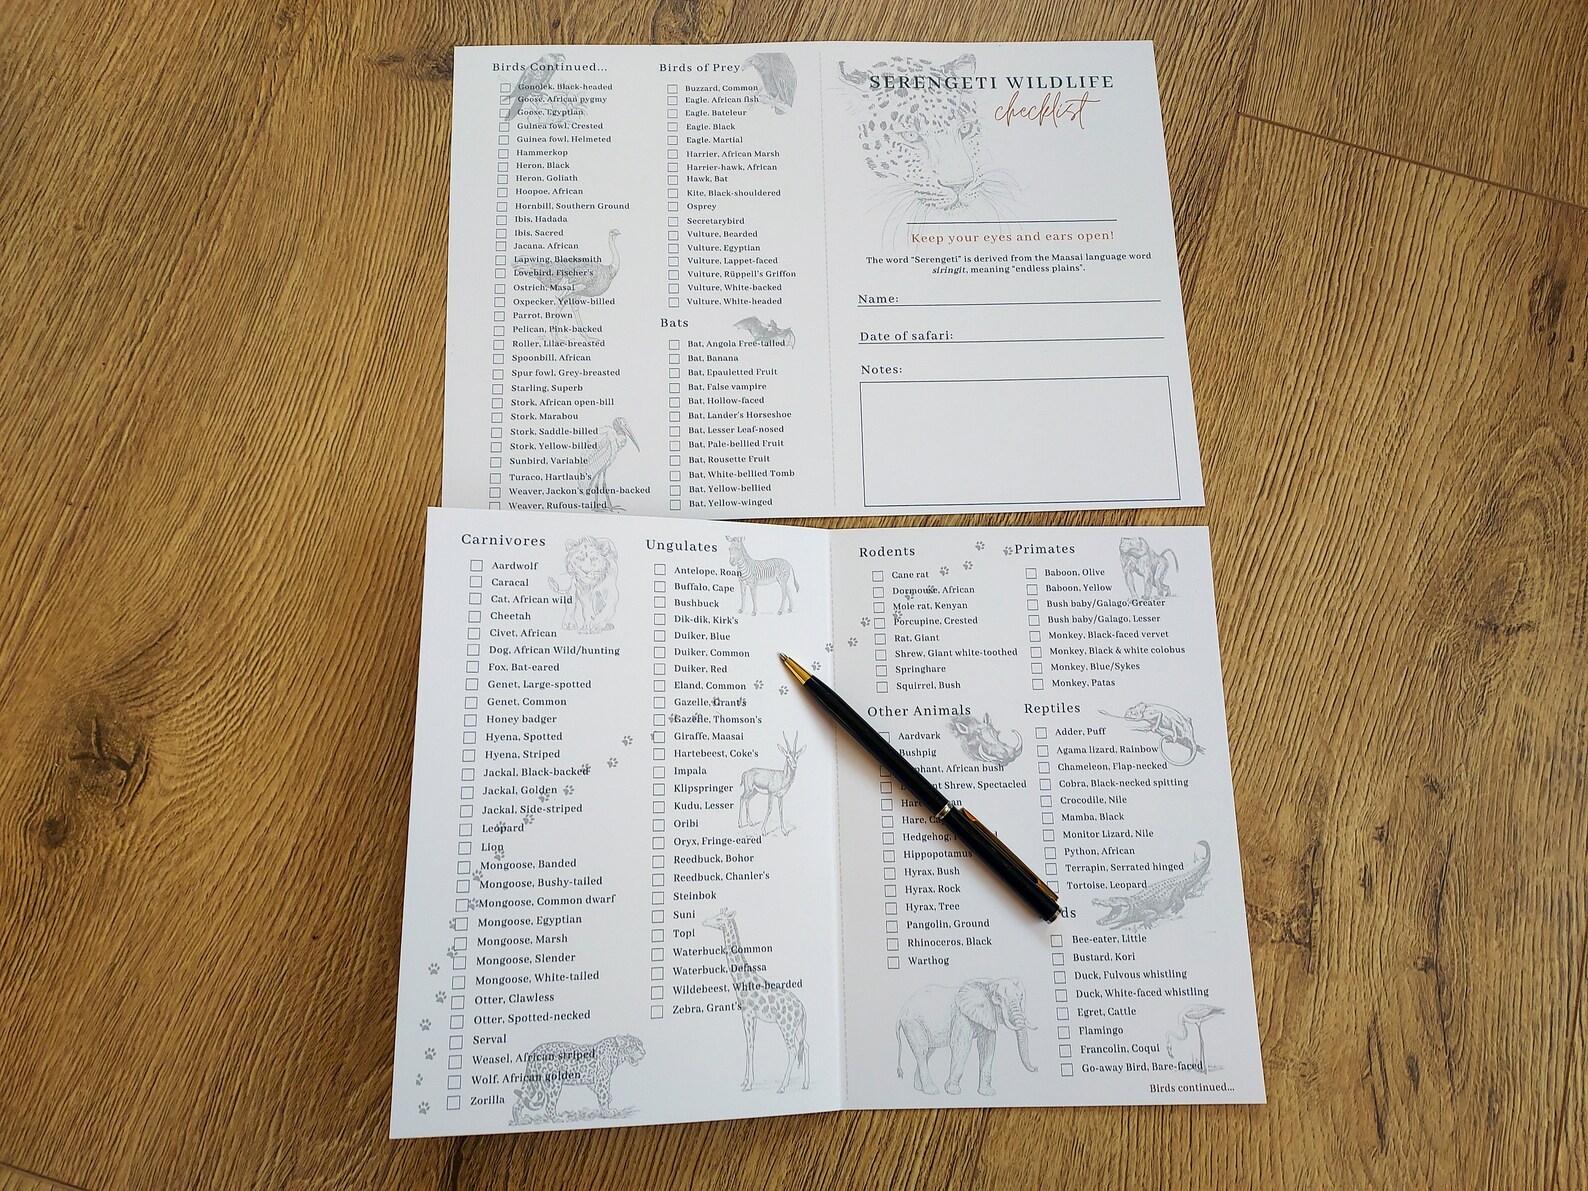 Birds Continued...
Gonolek, Black-headed
Goose, African pygmy
Goose, Egyptian
Guinea fowl, Crested
Guinea fowl, Helmeted
Hammerkop
Heron, Black
Heron, Goliath
Hoopoe, African
Hornbill, Southern Ground
Ibis, Hadada
Ibis, Sacred
Jacana. African
Lapwing, Blacksmith
Lovebird, Fischer's
Ostrich, Masai
Oxpecker, Yellow-billed
Parrot, Brown
Pelican, Pink-backed
Roller, Lilac-breasted
Spoonbill, African
Spur fowl, Grey-breasted
Starling, Superb
Stork, African open-bill
Stork, Marabou
Stork, Saddle-billed
Stork, Yellow-billed
Sunbird, Variable
Turaco, Hartlaub's
Weaver, Jackon's golden-backed
Weaver, Rufous-tailed
Birds of Prey
Buzzard, Common
Eagle. African fish
Eagle. Bateleur
Eagle. Black
Eagle. Martial
Harrier, African Marsh
Harrier-hawk, African
Hawk, Bat
Kite, Black-shouldered
Osprey
Secretarybird
Vulture, Bearded
Vulture, Egyptian
Vulture, Lappet-faced
Vulture, Rüppell's Griffon
Vulture, White-backed
Vulture, White-headed
Bats
Bat, Angola Free-tailed
Bat, Banana
Bat, Epauletted Fruit
Bat, False vampire
Bat, Hollow-faced
Bat, Lander's Horseshoe
Bat, Lesser Leaf-nosed
Bat, Pale-bellied Fruit
Bat, Rousette Fruit
Bat, White-bellied Tomb
Bat, Yellow-bellied
Bat, Yellow-winged
SERENGETI WILDLIFE
checklist
Keep your eyes and ears open!
The word "Serengeti" is derived from the Maasai language word
siringit, meaning "endless plains".
Name:
Date of safari:
Notes:
Carnivores
Aardwolf
Caracal
Cat, African wild
Cheetah
Civet, African
Dog, African Wild/hunting
Fox, Bat-eared
Genet, Large-spotted
Genet, Common
Honey badger
Hyena, Spotted
Hyena, Striped
Jackal, Black-backed
Jackal, Golden
Jackal, Side-striped
Leopard
Lion
Mongoose, Banded
Mongoose, Bushy-tailed
Mongoose, Common dwarf
Mongoose, Egyptian
Mongoose, Marsh
Mongoose, Slender
Mongoose, White-tailed
Otter, Clawless
Otter, Spotted-necked
Serval
Weasel, African striped
Wolf. African golden
Zorilla
Ungulates
Antelope, Roan
Buffalo, Cape
Bushbuck
Dik-dik, Kirk's
Duiker, Blue
Duiker, Common
Duiker, Red
Eland, Common
Gazelle, Grant's
Gazelle, Thomson's
Giraffe, Maasai
Hartebeest, Coke's
Impala
Klipspringer
Kudu, Lesser
Oribi
Oryx, Fringe-eared
Reedbuck, Bohor
Reedbuck, Chanler's
Steinbok
Suni
Topi
Waterbuck, Common
Waterbuck, Defassa
Wildebeest, White-bearded
Zebra, Grant's
Rodents
Cane rat
Dormouse, African
Mole rat, Kenyan
Porcupine, Crested
Rat, Giant
Shrew, Giant white-toothed
Springhare
Squirrel, Bush
Other Animals
Aardvark
Bushpig
African bush
Shrew, Spectacled
Hare,
Hare,
Hedgehog,
Hippopotamus
Hyrax, Bush
Hyrax, Rock
Hyrax, Tree
Pangolin, Ground
Rhinoceros, Black
Warthog
Primates
Baboon, Olive
Baboon, Yellow
Bush baby/Galago, Greater
Bush baby/Galago, Lesser
Monkey, Black-faced vervet
Monkey, Black & white colobus
Monkey, Blue/Sykes
Monkey, Patas
Reptiles
Adder, Puff
Agama lizard, Rainbow
Chameleon, Flap-necked
Cobra, Black-necked spitting
Crocodile, Nile
Mamba, Black
Monitor Lizard, Nile
Python, African
Terrapin, Serrated hinged
Tortoise, Leopard
Bee-eater, Little
Bustard, Kori
Duck, Fulvous whistling
Duck, White-faced whistling
Egret, Cattle
Flamingo
Francolin, Coqui
Go-away Bird, Bare-faced
Birds continued...